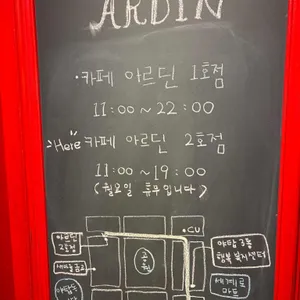 ARDIN
· 카페 아르딘 1호점
11:00 ~ 22:00
Here 카페 아르딘 2호점
11:00 ~ 19:00
( 월요일 휴무입니다 )
CU
아르딘
2호점
공원
야탑3동
행복복지센터
세계로
마트